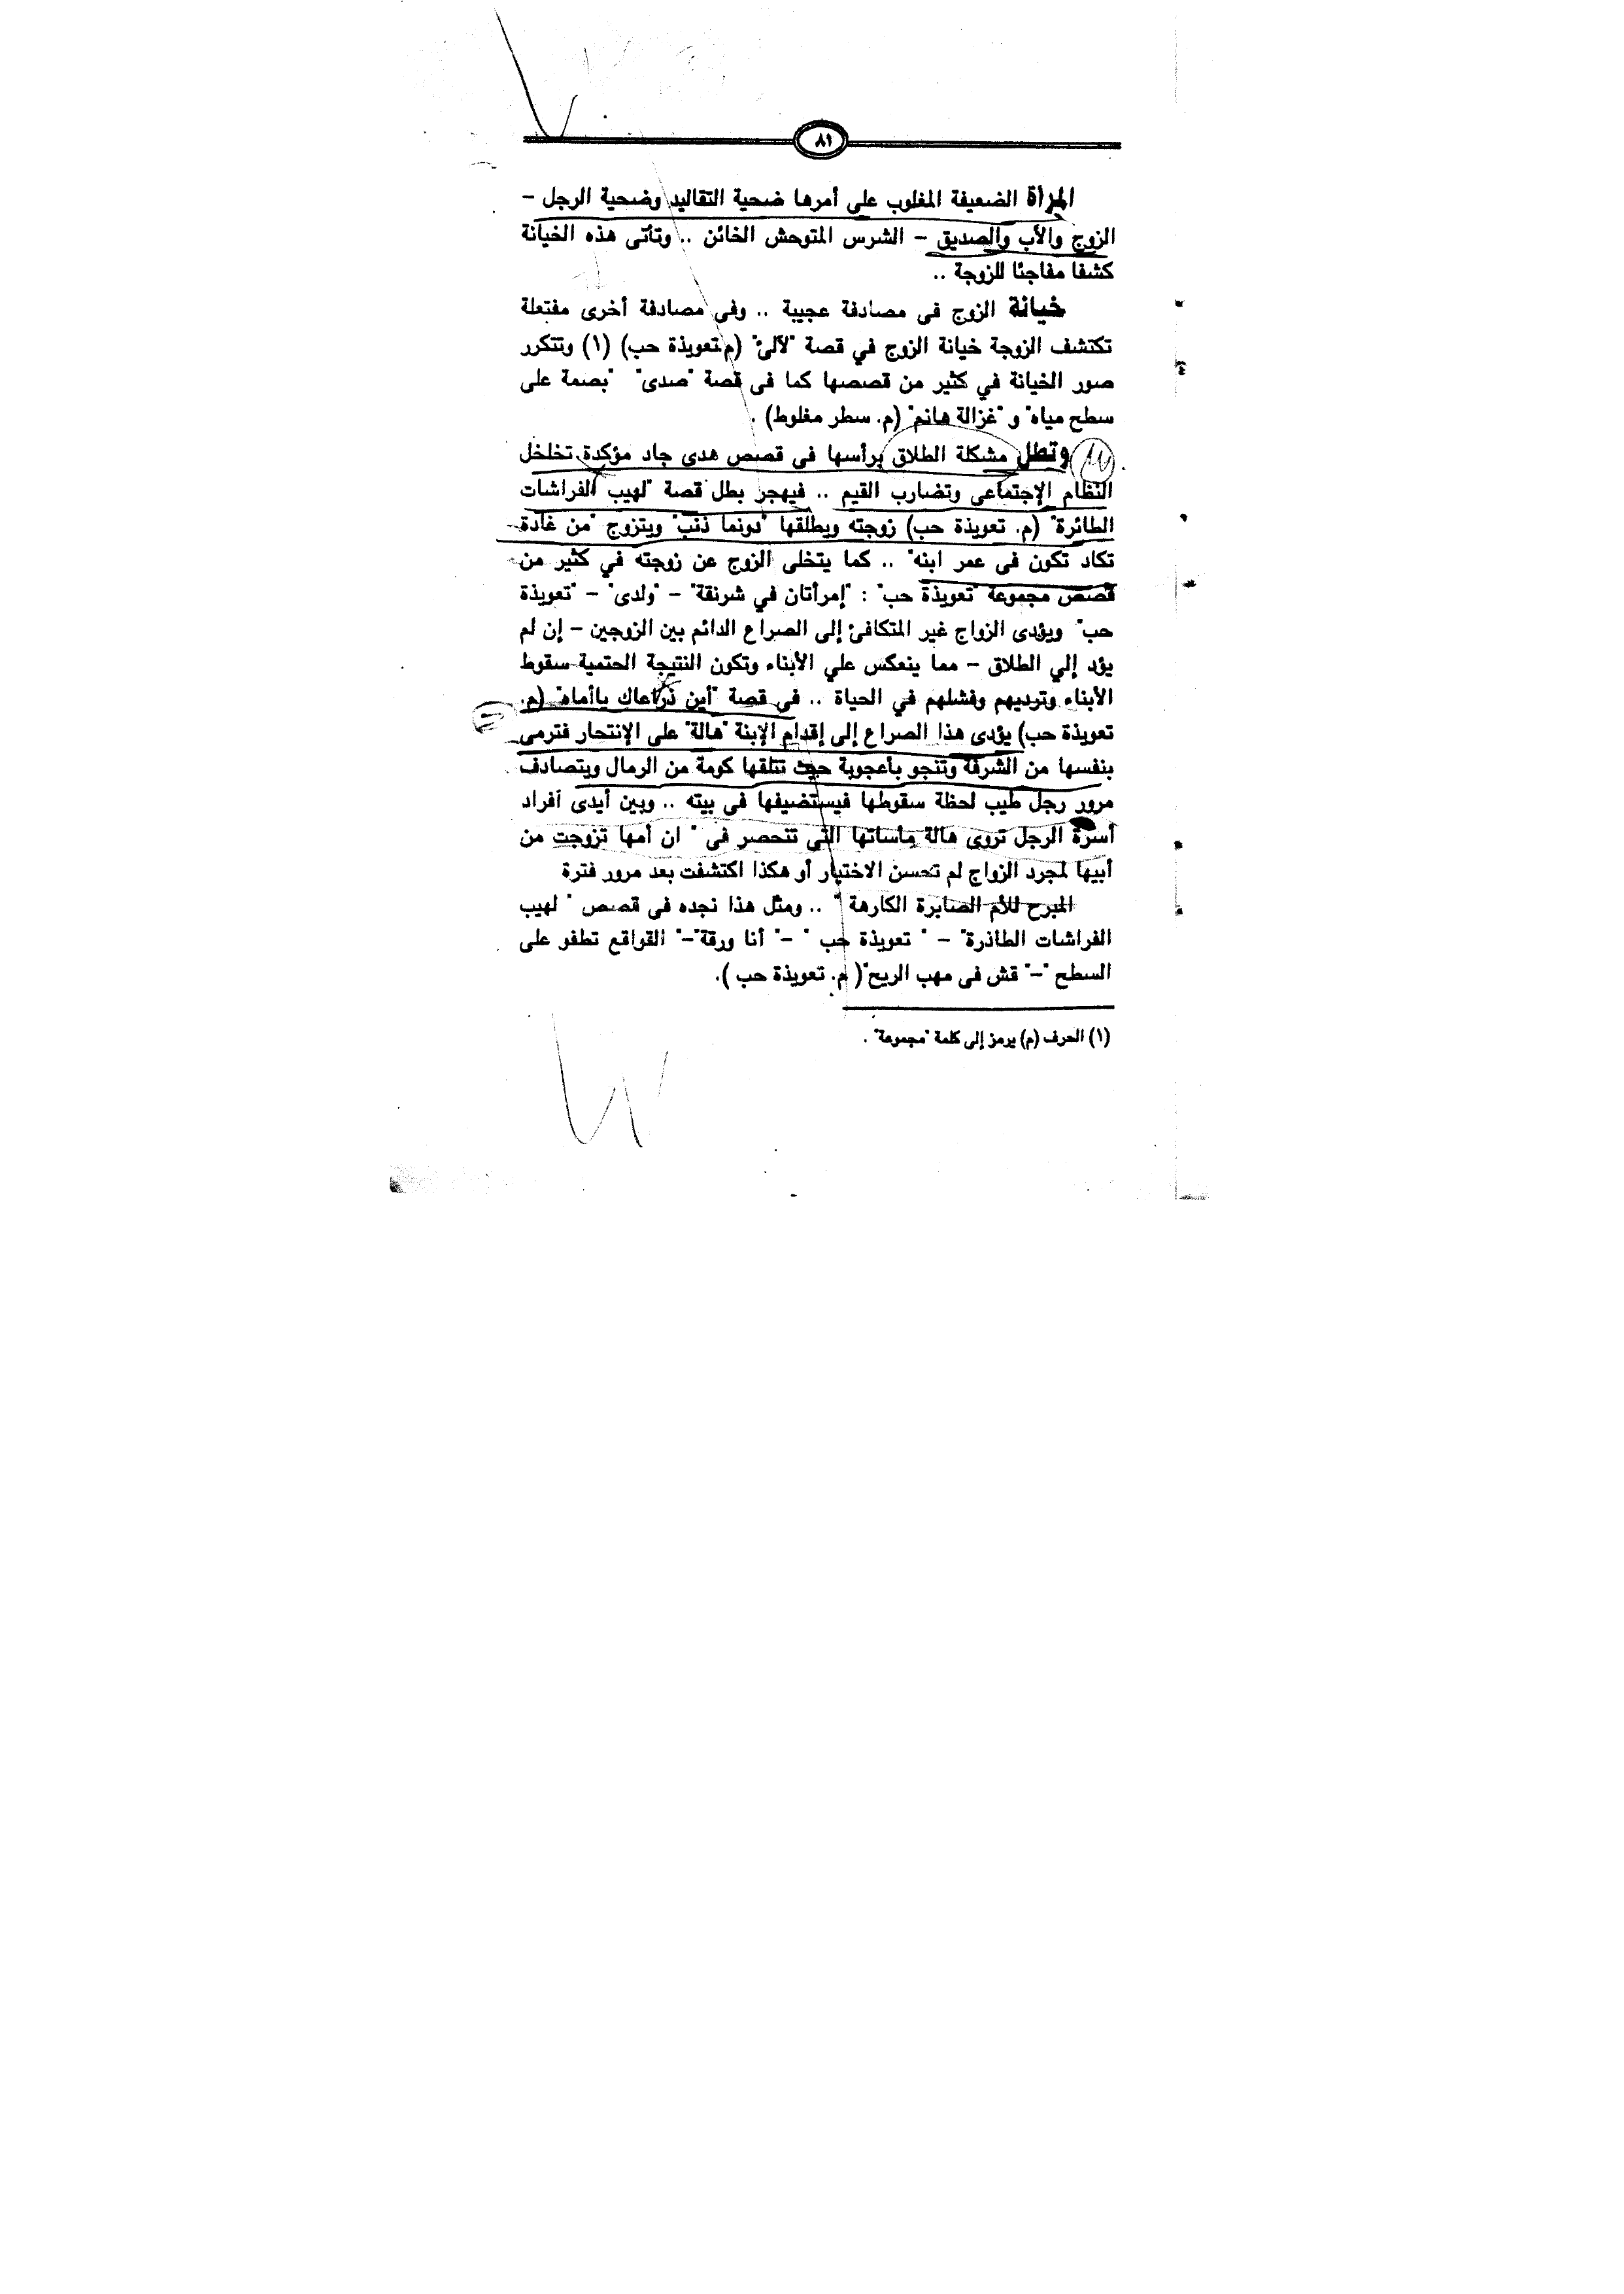 ٨١
المرأة الضعيفة المغلوب على أمرها ضحية التقاليد وضحية الرجل –
الزوج والأب والصديق – الشرس المتوحش الخائن .. وتأتى هذه الخيانة
كشفا مفاجئا للزوجة ..
خيانة الزوج فى مصادفة عجيبة .. وفى مصادفة أخرى مفتعلة
تكتشف الزوجة خيانة الزوج في قصة "لآلئ" (م.تعويذة حب) (١) وتتكرر
صور الخيانة في كثير من قصصها كما فى قصة "صدى" "بصمة على
سطح مياه" و "غزالة هانم" (م. سطر مغلوط) .
وتطل مشكلة الطلاق برأسها فى قصص هدى جاد مؤكدة تخلخل
النظام الإجتماعى وتضارب القيم .. فيهجر بطل قصة "لهيب الفراشات
الطائرة" (م. تعويذة حب) زوجته ويطلقها "دونما ذنب" ويتزوج "من غادة
تكاد تكون فى عمر ابنه" .. كما يتخلى الزوج عن زوجته في كثير من
قصص مجموعة "تعويذة حب" : "إمرأتان في شرنقة" – "ولدى" – "تعويذة
حب" ويؤدى الزواج غير المتكافئ إلى الصراع الدائم بين الزوجين – إن لم
يؤد إلي الطلاق – مما ينعكس علي الأبناء وتكون النتيجة الحتمية سقوط
الأبناء وترديهم وفشلهم في الحياة .. فى قصة "أين ذراعاك ياأماه" (م.
تعويذة حب) يؤدى هذا الصراع إلى إقدام الإبنة "هالة" على الإنتحار فترمى
بنفسها من الشرفة وتنجو بأعجوبة حيث تتلقها كومة من الرمال ويتصادف
مرور رجل طيب لحظة سقوطها فيستضيفها فى بيته .. وبين أيدى أفراد
أسرة الرجل تروى هالة مأساتها التى تتحصر فى " ان أمها تزوجت من
أبيها لمجرد الزواج لم تحسن الاختيار أو هكذا اكتشفت بعد مرور فترة
المبرح للأم الصابرة الكارهة " .. ومثل هذا نجده فى قصص " لهيب
الفراشات الطاذرة" – " تعويذة حب " –" أنا ورقة"–" القواقع تطفر على
السطح "–" قش فى مهب الريح"( م. تعويذة حب ).
(١) الحرف (م) يرمز إلى كلمة "مجموعة" .